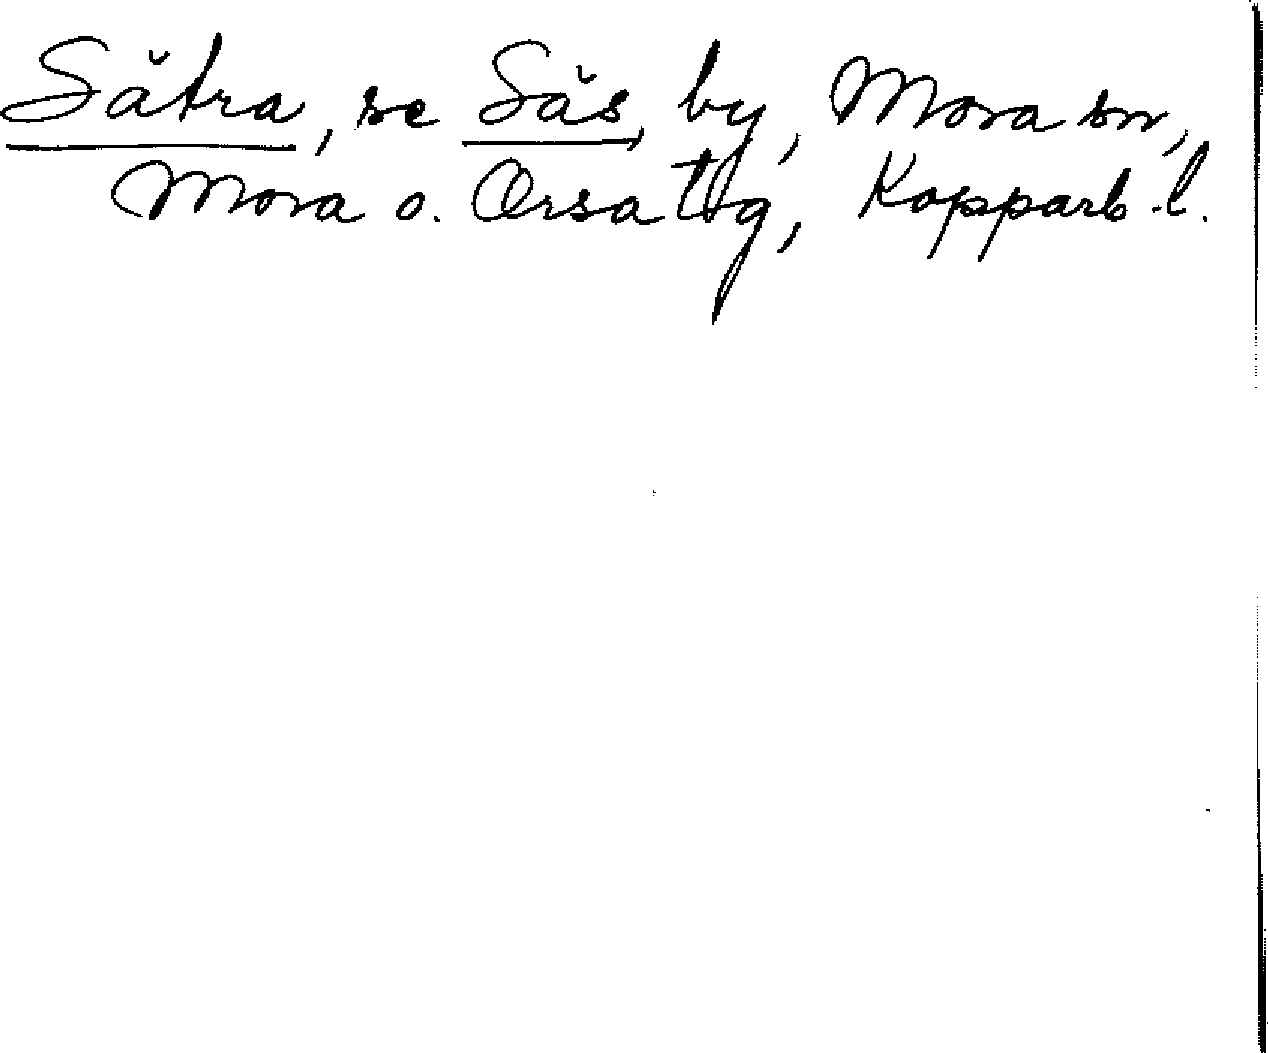 Sätra, se Säs, by, Mora sn,
Mora o. Orsa tg, Kopparb. l.